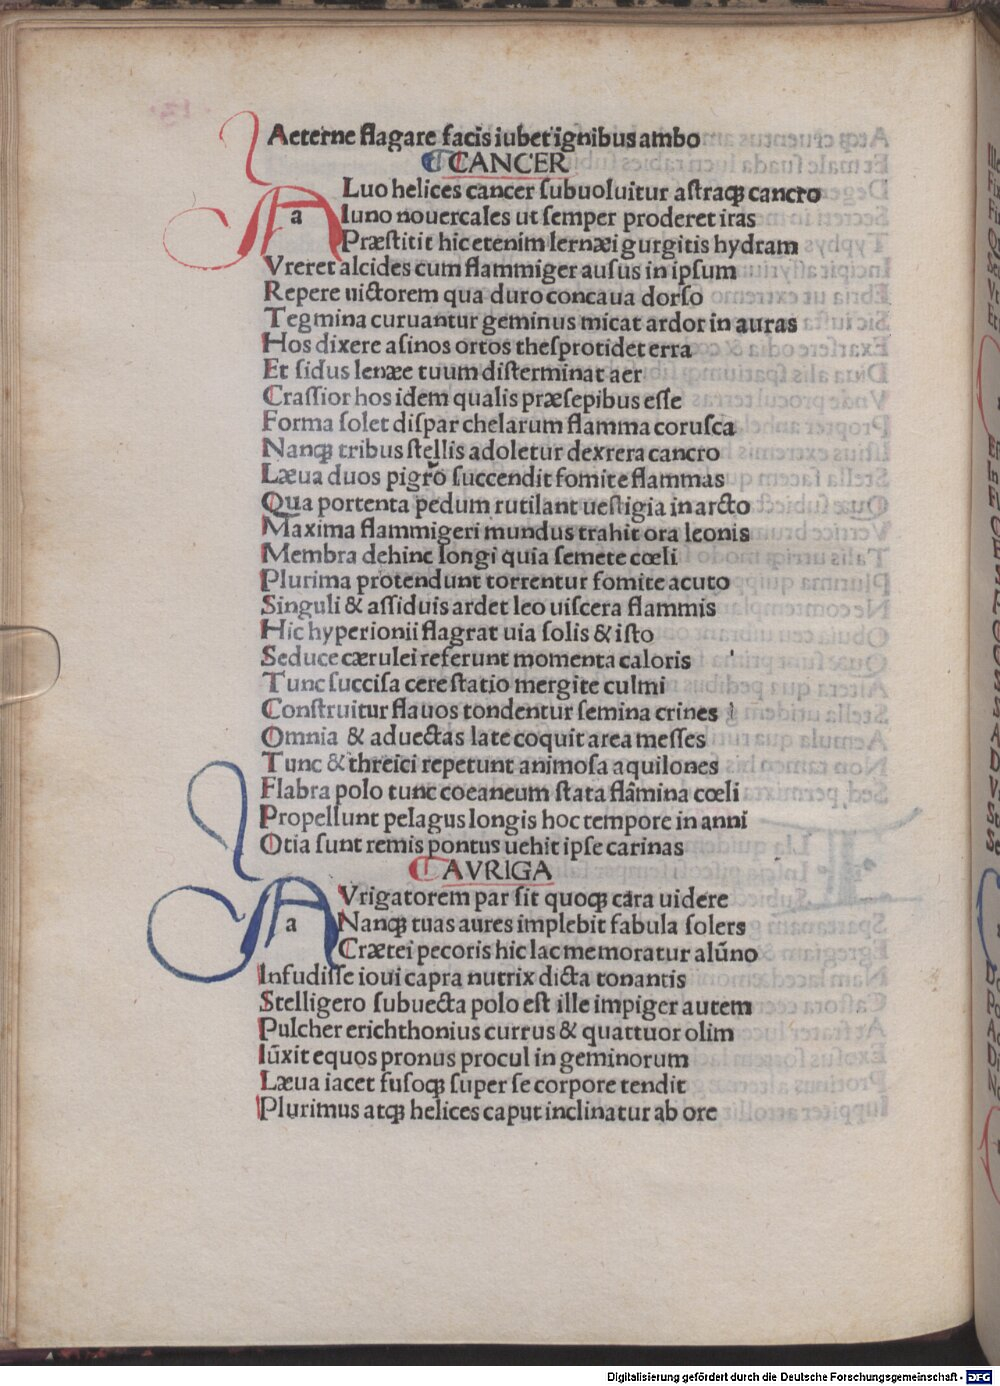 Aeterne flagare facis iubet ignibus ambo
CANCER
A
a
Luo helices cancer ſubuoluitur aſtraqꝫ cancro
Iuno nouercales ut ſemper proderet iras
Præſtitit hic etenim lernæi gurgitis hydram
Vreret alcides cum flammiger auſus in ipſum
Repere uictorem qua duro concaua dorſo
Tegmina curuantur geminus micat ardor in auras
Hos dixere aſinos ortos theſprotidet erra
Et ſidus lenæe tuum diſterminat aer
Craſſior hos idem qualis præſepibus eſſe
Forma ſolet diſpar chelarum flamma coruſca
Nanqꝫ tribus ſtellis adoletur dexrera cancro
Læua duos pigro ſuccendit fomite flammas
Qua portenta pedum rutilant ueſtigia in arcto
Maxima flammigeri mundus trahit ora leonis
Membra dehinc longi quia ſemete cœli
Plurima protendunt torrentur fomite acuto
Singuli & aſſiduis ardet leo uiſcera flammis
Hic hyperionii flagrat uia ſolis & iſto
Seduce cærulei referunt momenta caloris
Tunc ſucciſa cere ſtatio mergite culmi
Conſtruitur flauos tondentur ſemina crines
Omnia & aduectas late coquit area meſſes
Tunc & threici repetunt animoſa aquilones
Flabra polo tunc coeaneum ſtata flāmina cœli
Propellunt pelagus longis hoc tempore in anni
Otia ſunt remis pontus uehit ipſe carinas
AVRIGA
A
a
Vrigatorem par ſit quoqꝫ cara uidere
Nanqꝫ tuas aures implebit fabula ſolers
Crætei pecoris hic lac memoratur alūno
Infudiſſe ioui capra nutrix dicta tonantis
Stelligero ſubuecta polo eſt ille impiger autem
Pulcher erichthonius currus & quattuor olim
Iūxit equos pronus procul in geminorum
Læua iacet fuſoqꝫ ſuper ſe corpore tendit
Plurimus atqꝫ helices caput inclinatur ab ore
Digitalisierung gefördert durch die Deutsche Forschungsgemeinschaft - DFG